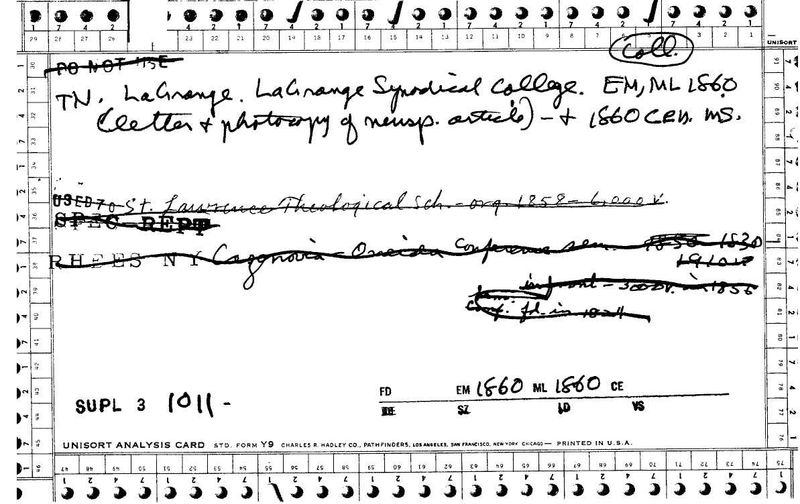 Coll.
UNISORT
DO NOT USE
TN. LaGrange. LaGrange Synodical College. EM, ML 1860
(letter + photocopy of newsp. article) - + 1860 cen. ms.
USED 70 St. Lawrence Theological Sch. - org 1858 - 6,000 v.
SPEC REPT
RHEES N Y Cazenovia - Oneida Conference Sem. 1850 1830
in front - 3000 v. in 1856
fd. in 1824
FD EM 1860 ML 1860 CE
SUPL 3 1011 -
SZ LD VS
UNISORT ANALYSIS CARD STD. FORM Y9 CHARLES R. HADLEY CO., PATHFINDERS, LOS ANGELES, SAN FRANCISCO, NEW YORK CHICAGO — PRINTED IN U.S.A.